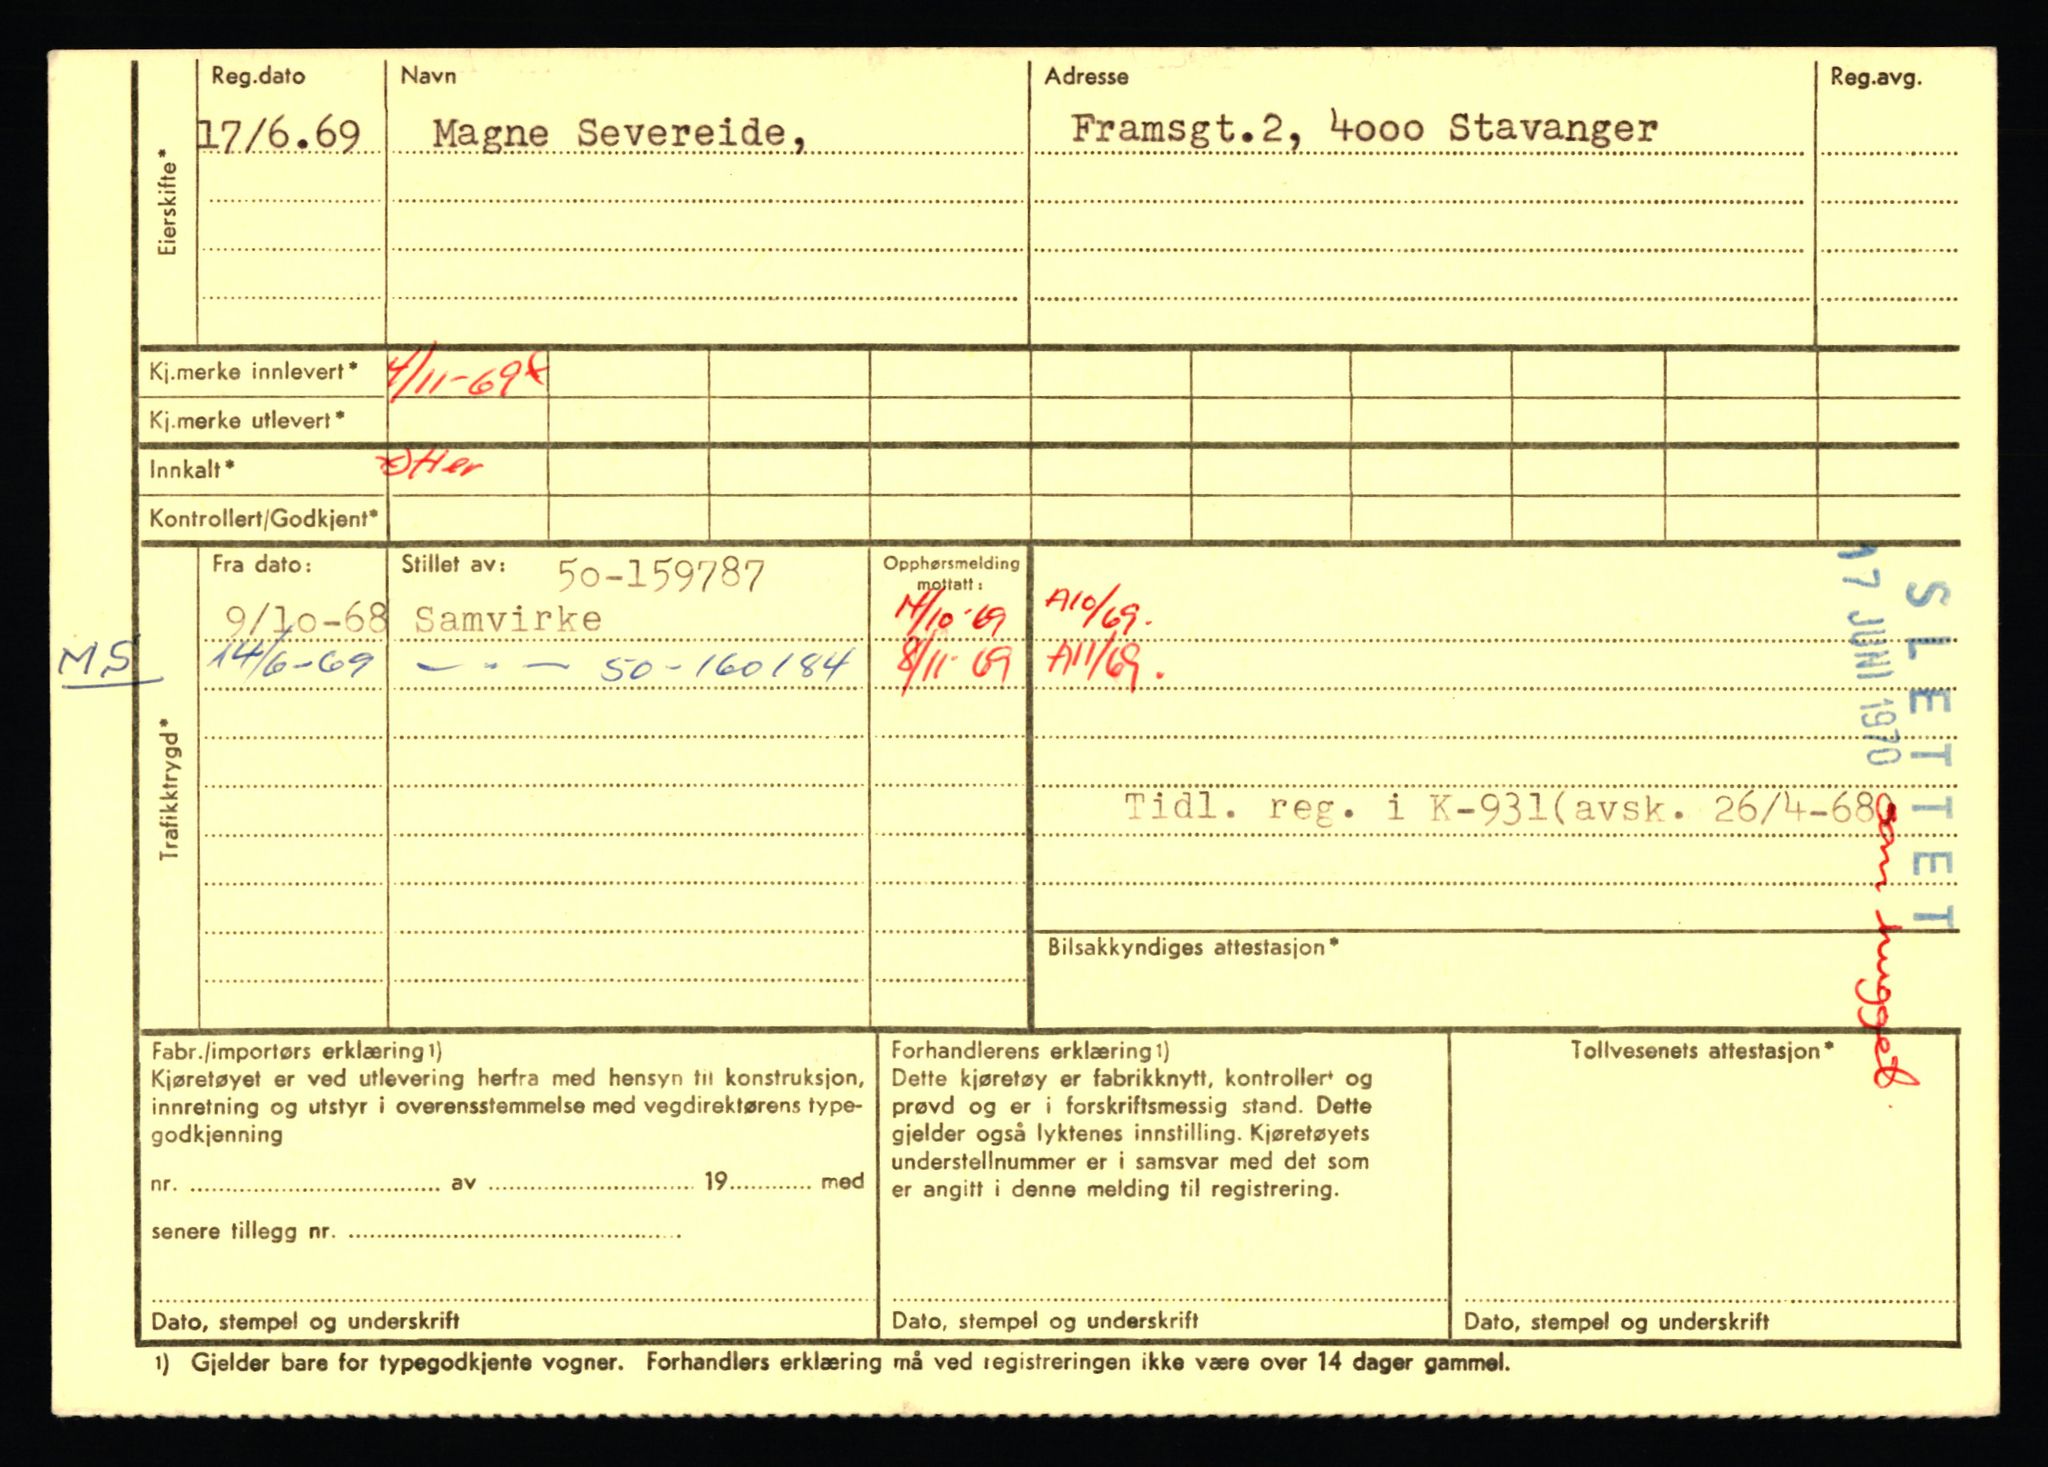 Reg.dato Navn Adresse Reg.avg.
17/6.69 Magne Severeide, Framsgt.2, 4000 Stavanger
Eierskifte*
Kj.merke innlevert* 4/11-69
Kj.merke utlevert*
Innkalt* Etter
Kontrollert/Godkjent*
Fra dato: Stillet av: 50-159787 Opphørsmelding mottatt:
9/10-68 Samvirke 14/10-69 A10/69.
MS 14/6-69 — " — 50-160184 8/11-69 A11/69.
Trafikktrygd*
SLETTET
17 JUNI 1970
Tidl. reg. i K-931(avsk. 26/4-68
som hugget
Bilsakkyndiges attestasjon*
Fabr./importørs erklæring1)
Kjøretøyet er ved utlevering herfra med hensyn til konstruksjon,
innretning og utstyr i overensstemmelse med vegdirektørens type-
godkjenning
nr. av 19 med
senere tillegg nr.
Dato, stempel og underskrift
Forhandlerens erklæring1)
Dette kjøretøy er fabrikknytt, kontrollert og
prøvd og er i forskriftsmessig stand. Dette
gjelder også lyktenes innstilling. Kjøretøyets
understellnummer er i samsvar med det som
er angitt i denne melding til registrering.
Dato, stempel og underskrift
Tollvesenets attestasjon*
Dato, stempel og underskrift
1) Gjelder bare for typegodkjente vogner. Forhandlers erklæring må ved registreringen ikke være over 14 dager gammel.